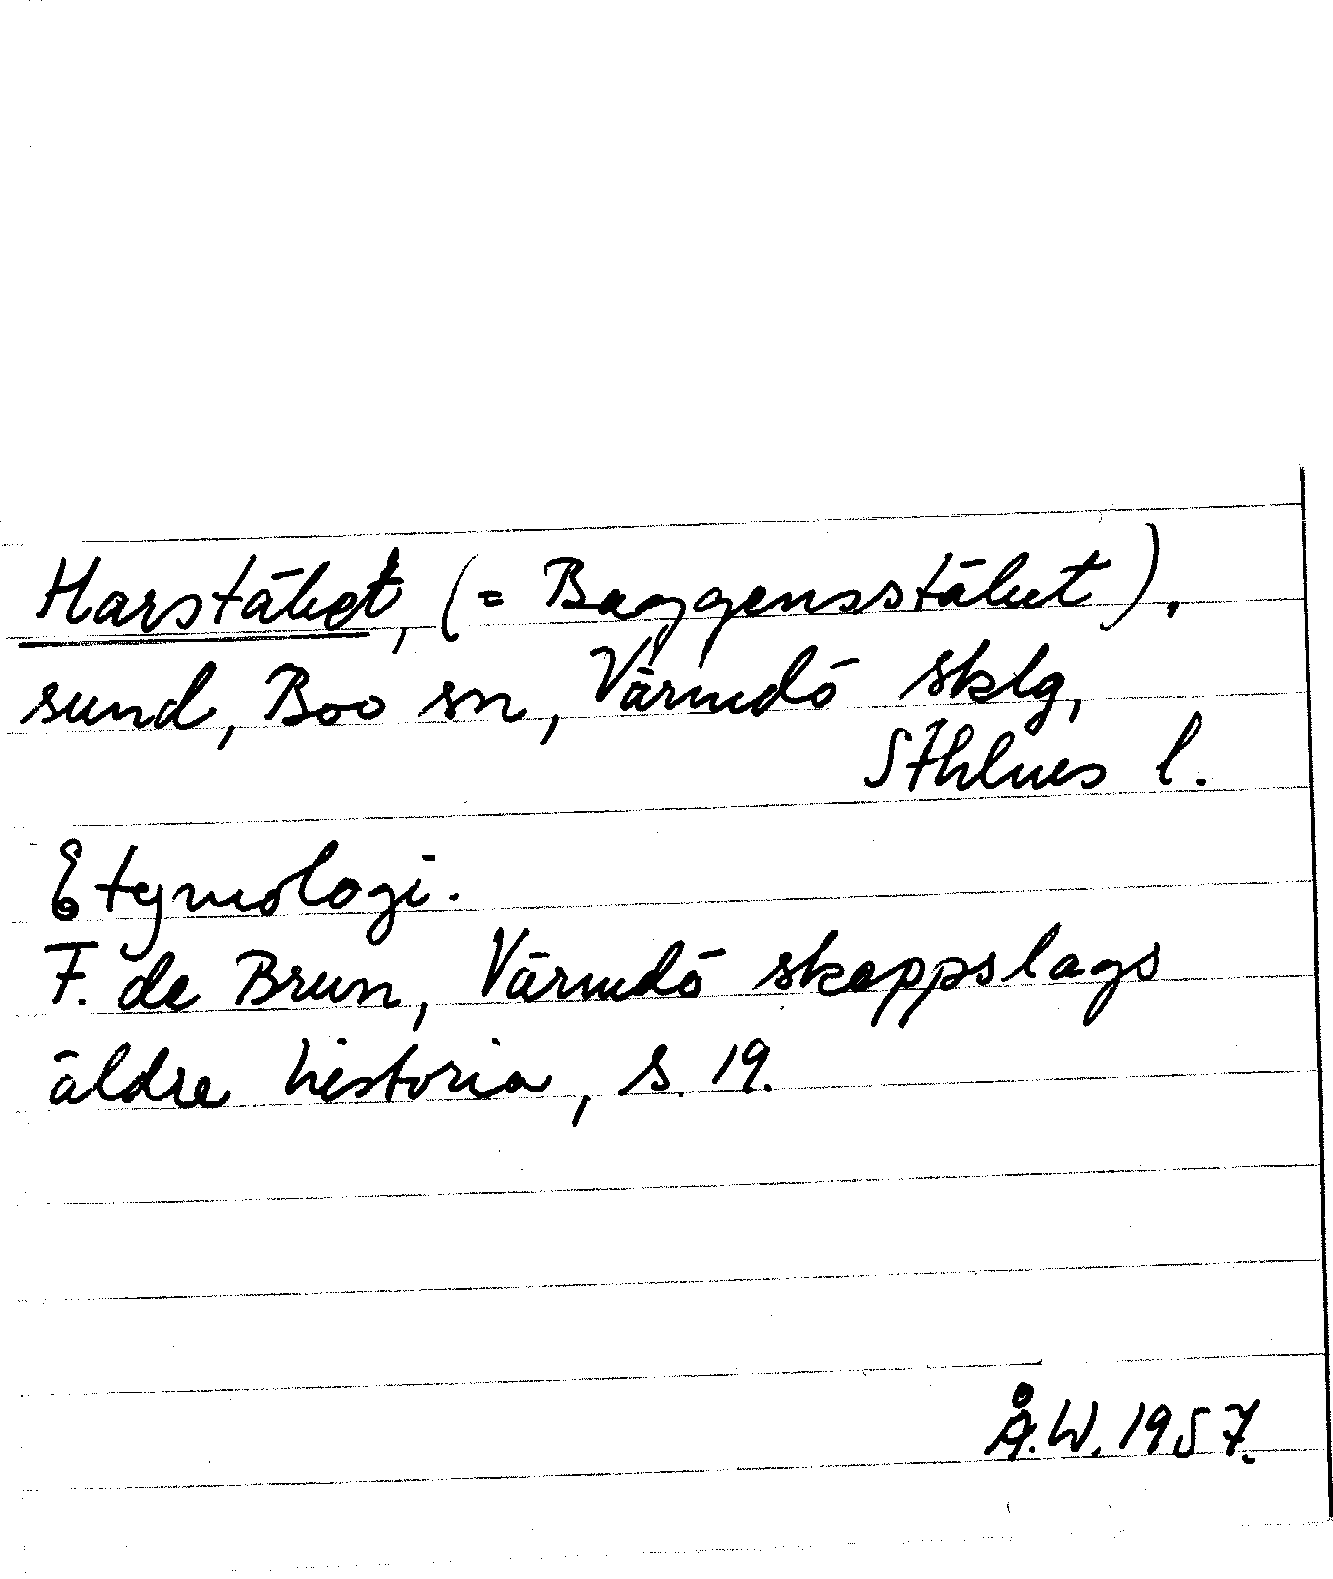 Harstäket, (= Baggensstäket),
sund, Boo sn, Värmdö sklg,
Sthlms l.
Etymologi.
F. de Brun, Värmdö skeppslags
äldre historia, s. 19.
Å.W. 1957.